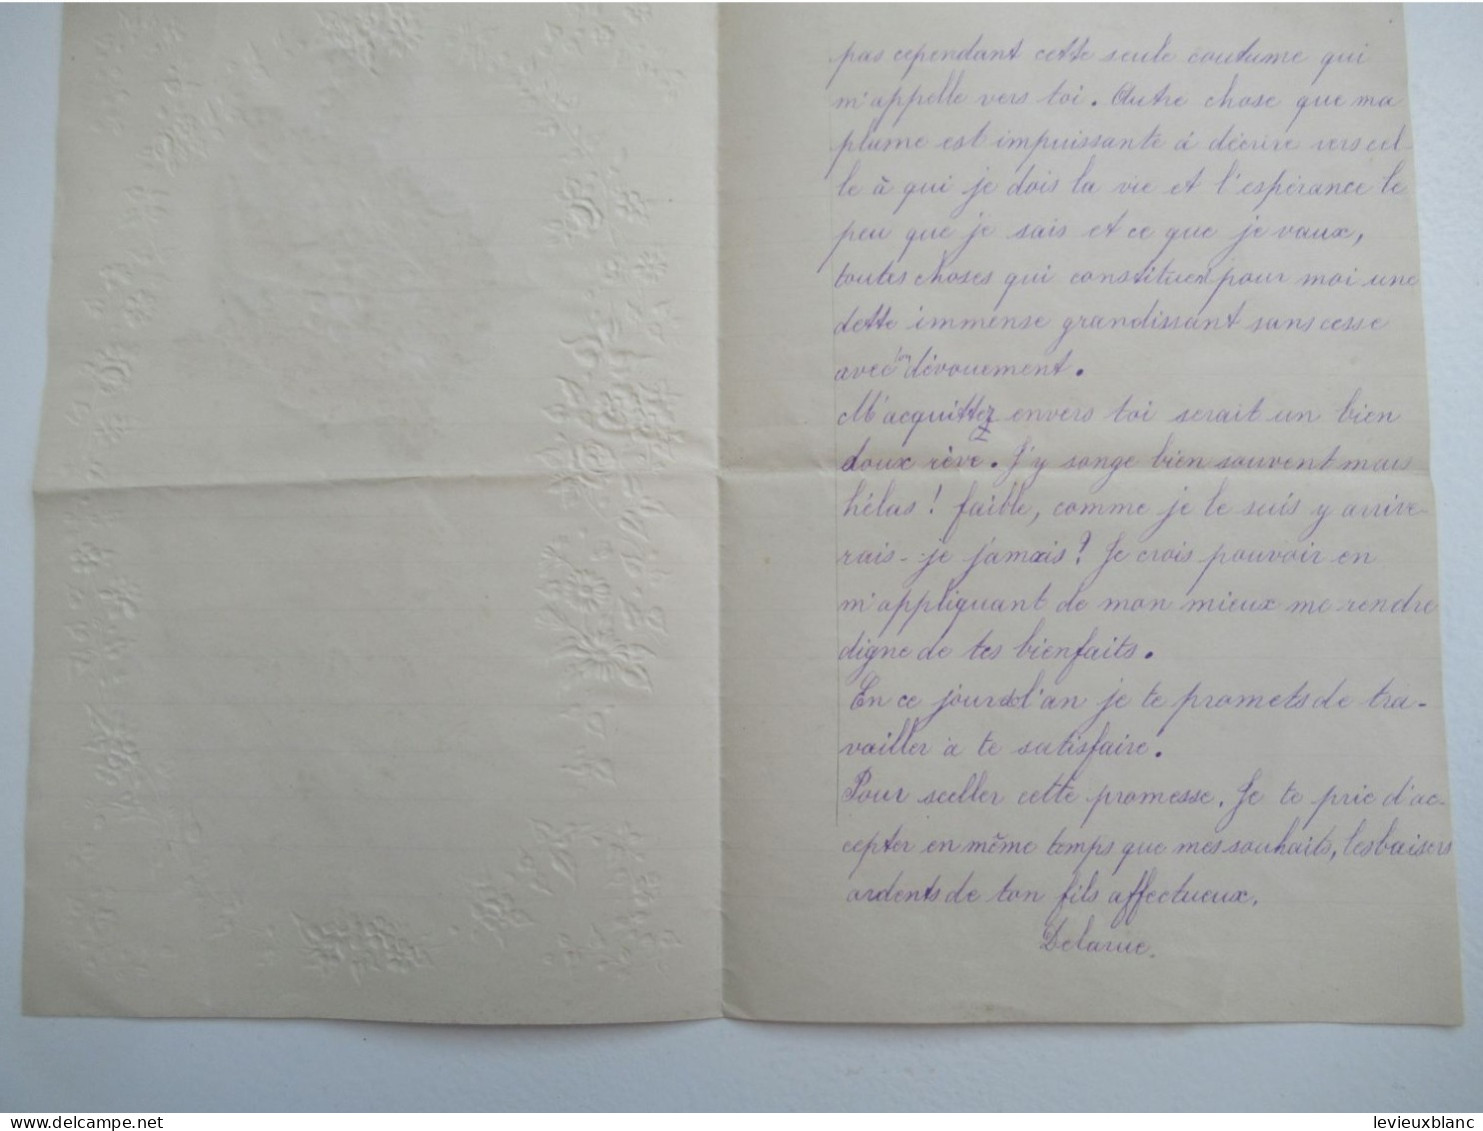 pas cependant cette seule coutume qui
m'appelle vers toi. Autre chose que ma
plume est impuissante à décrire vers cel-
le à qui je dois la vie et l'espérance le
peu que je sais et ce que je vaux,
toutes choses qui constituent pour moi une
dette immense grandissant sans cesse
avec ton dévouement.
M'acquitter envers toi serait un bien
doux rêve. J'y songe bien souvent mais
hélas! faible, comme je le suis y arrive-
rais-je jamais? Je crois pouvoir en
m'appliquant de mon mieux me rendre
digne de tes bienfaits.
En ce jour de l'an je te promets de tra-
vailler à te satisfaire.
Pour sceller cette promesse. Je te prie d'ac-
cepter en même temps que mes souhaits, les baisers
ardents de ton fils affectueux.
Delarue.
delcampe.net
levieuxblanc